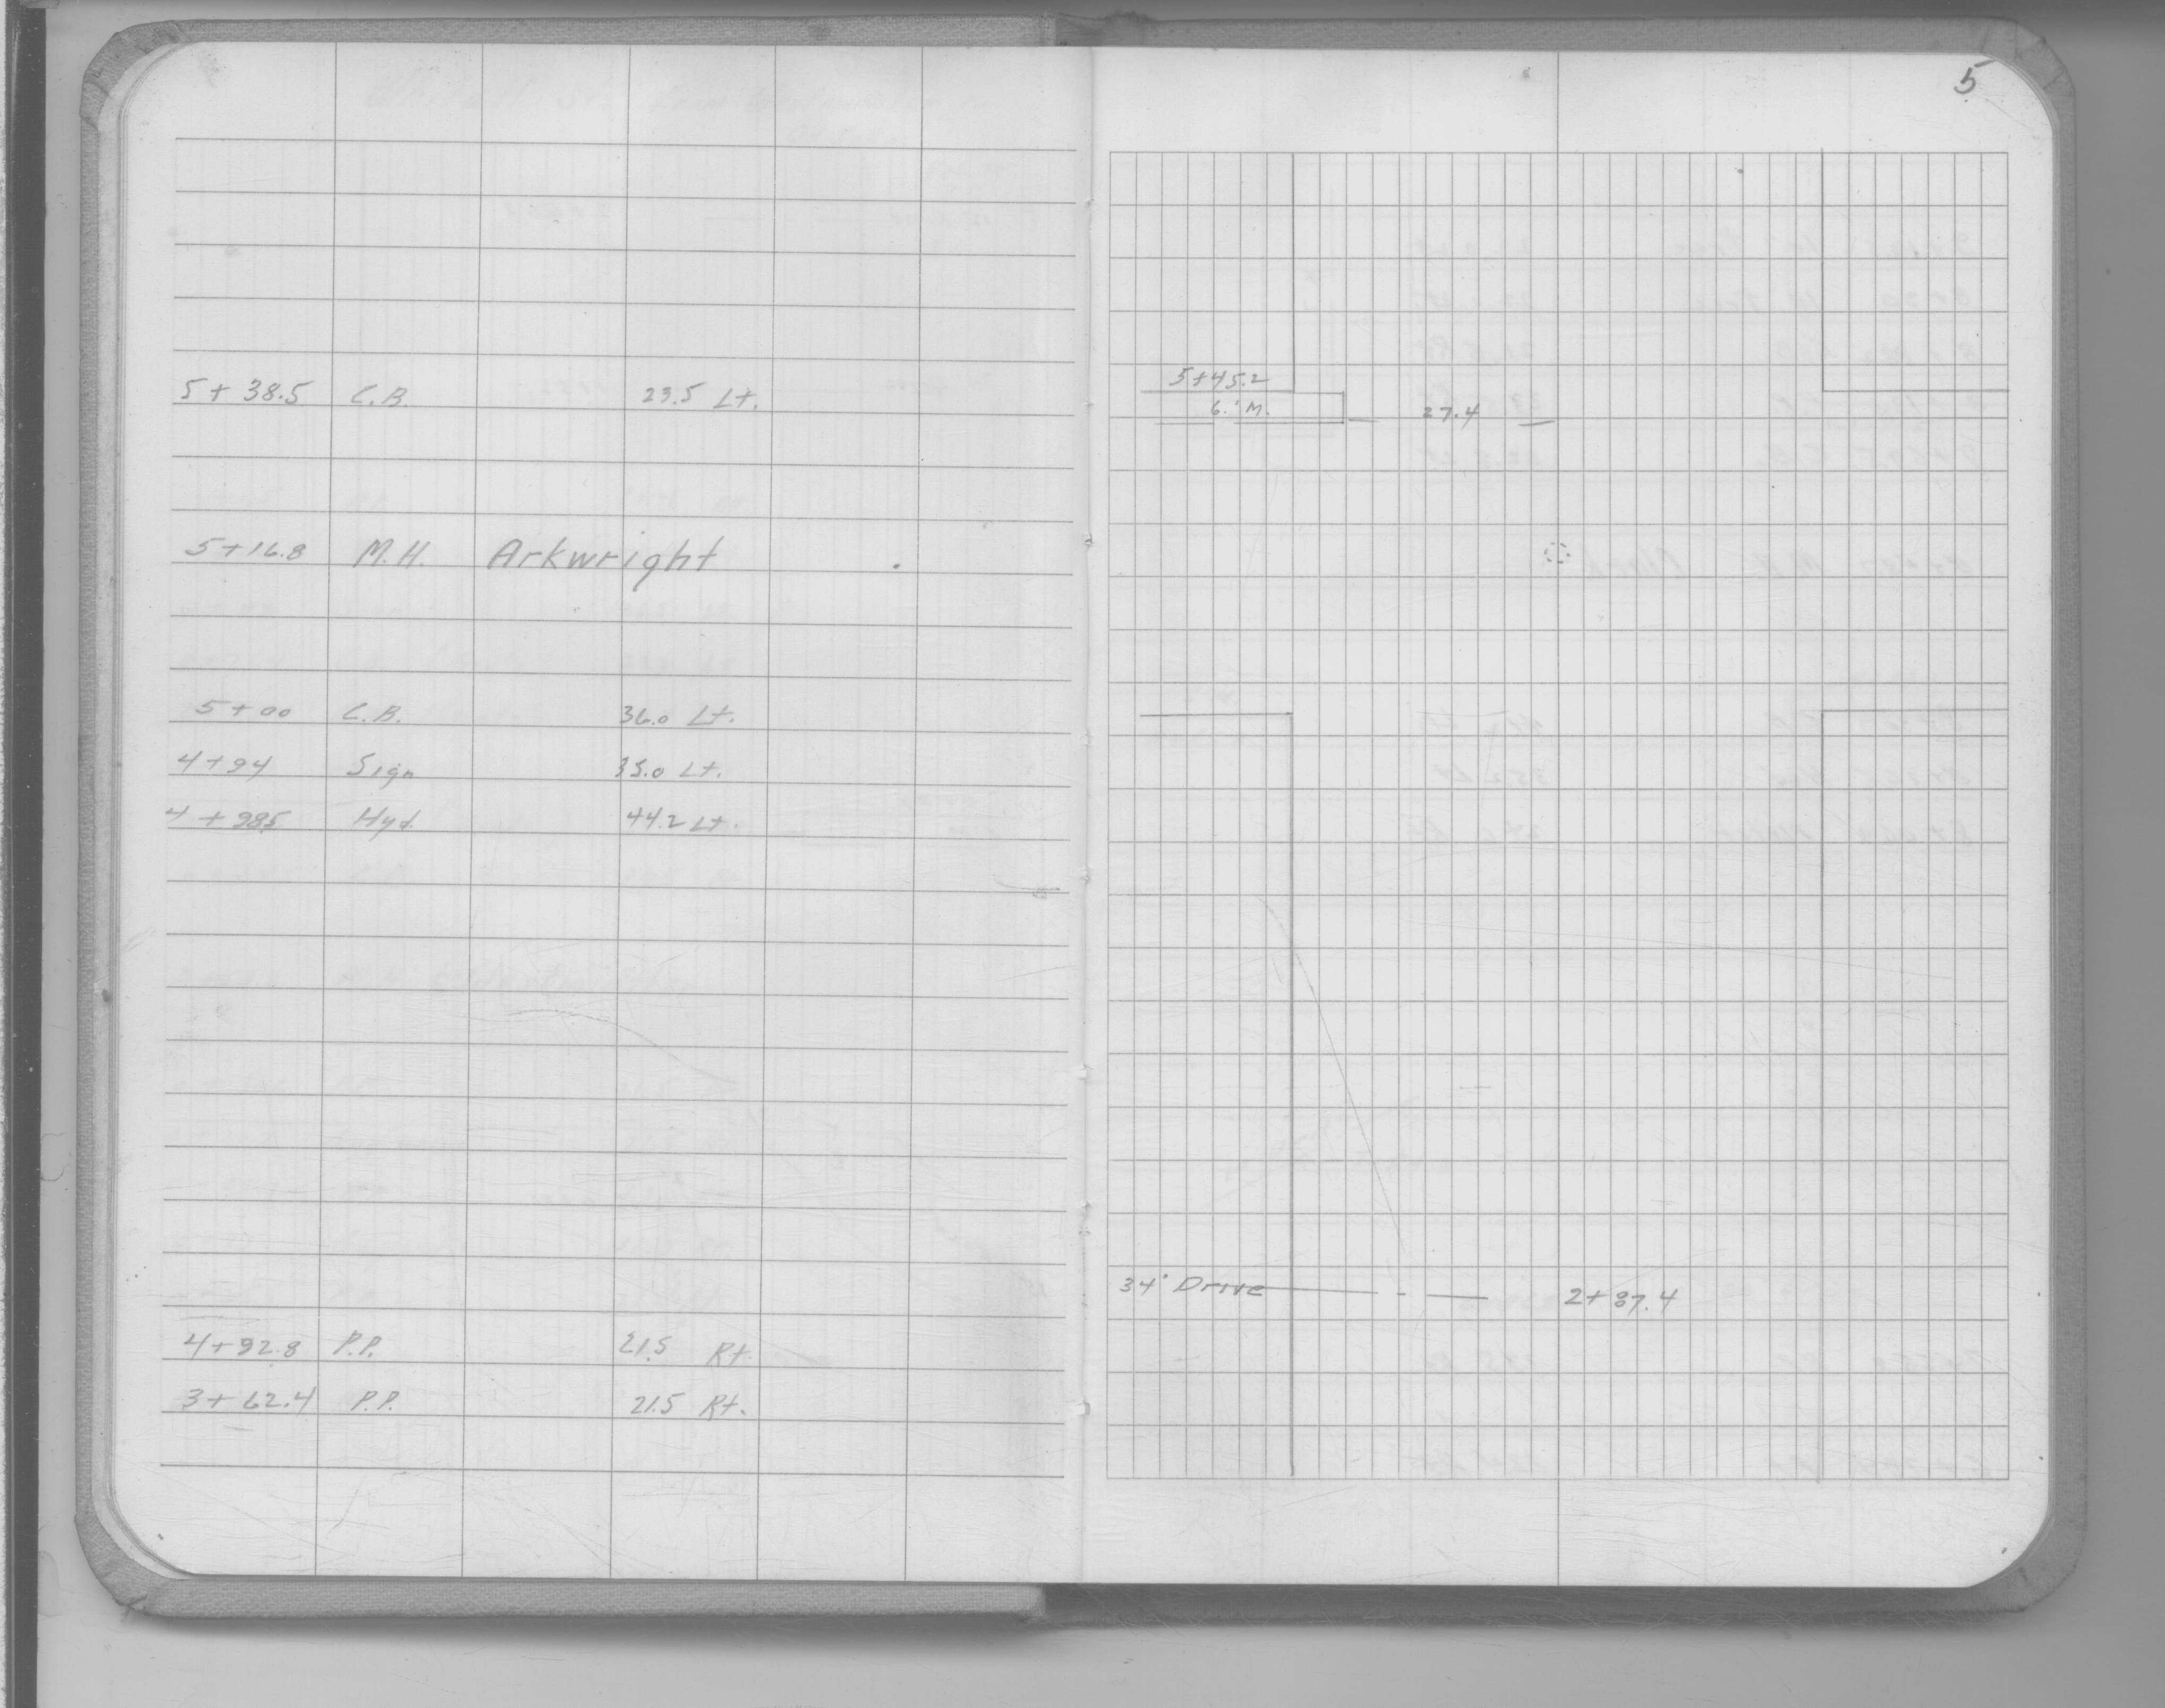 5+38.5 C.B. 23.5 Lt.
5+16.8 M.H. Arkwright
5+00 C.B. 36.0 Lt.
4+94 Sign 35.0 Lt.
4+985 Hyd. 44.2 Lt.
4+92.8 P.P. 21.5 Rt.
3+62.4 P.P. 21.5 Rt.
5
5+45.2
6.' M. 27.4
34' Drive 2+87.4